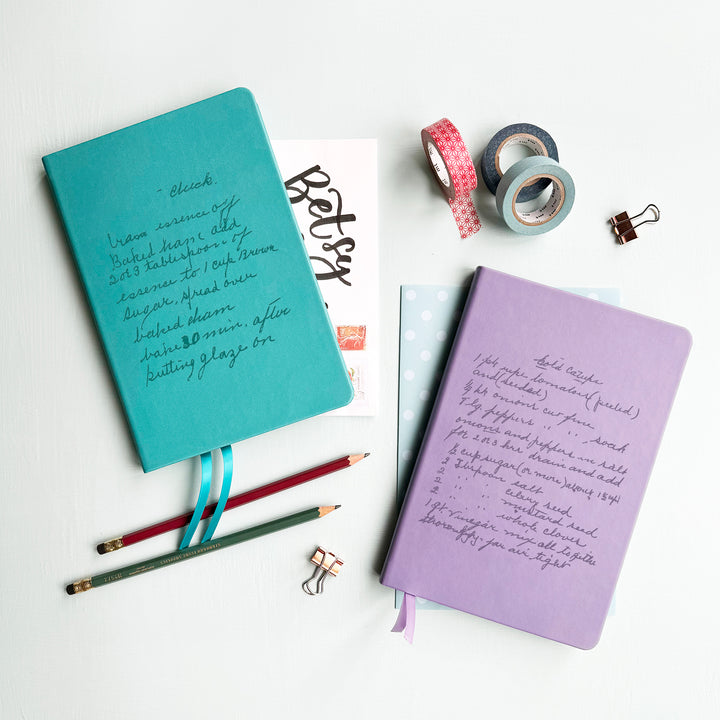 - Cluck.
essence off
Baked ham add
2 or 3 tablespoon of
essence to 1 cup Brown
sugar, spread over
baked ham
bake 30 min, after
putting glaze on
Betsy
Cold
1 pk ripe tomatoes (peeled)
and (seeded)
onions cut fine
peppers " " , soak
onions and peppers in salt
for 2 or 3 hrs drain and add
cup sugar (or more) about
2 salt
2 " " celery seed
2 " " mustard seed
2 " " whole clover
1 qt vinegar mix all together
air tight